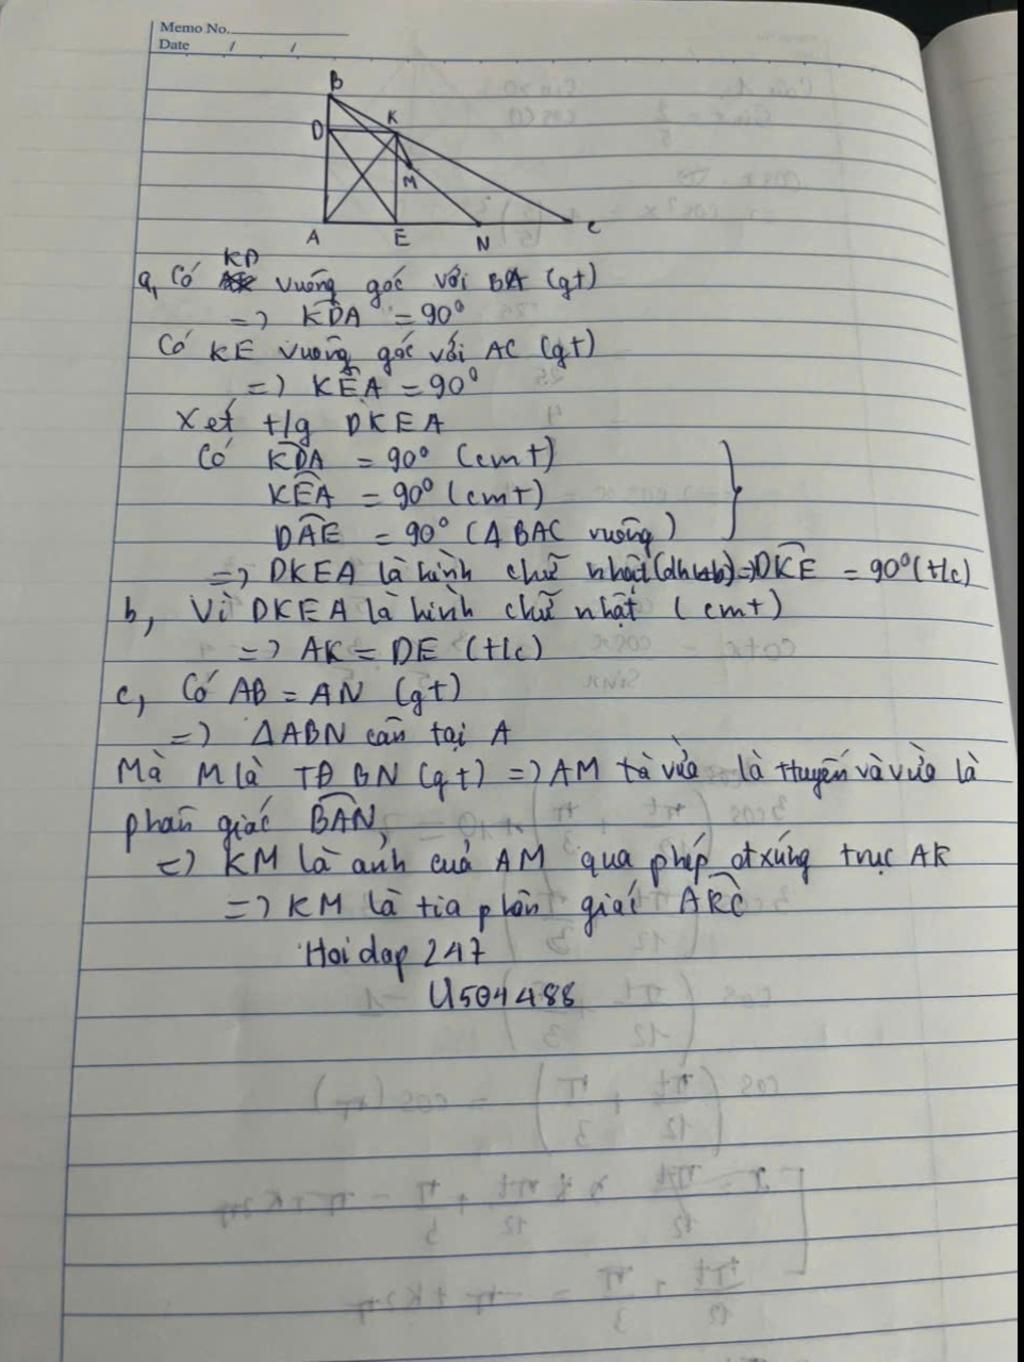 Memo No.
Date / /
B
D K
M
A E N C
a, Có KD vuông góc với BA (gt)
=> KDA = 90°
Có KE vuông góc với AC (gt)
=> KEA = 90°
Xét t/g DKEA
Có KDA = 90° (cmt)
KEA = 90° (cmt)
DAE = 90° (ΔBAC vuông)
=> DKEA là hình chữ nhật (dhnb) => DKE = 90° (t/c)
b, Vì DKEA là hình chữ nhật (cmt)
=> AK = DE (t/c)
c, Có AB = AN (gt)
=> ΔABN cân tại A
Mà M là TĐ BN (gt) => AM là vừa là ttuyến và vừa là
phân giác BAN,
=> KM là ảnh của AM qua phép đtxứng trục AK
=> KM là tia phân giác AKC
Hoidap 247
U504488